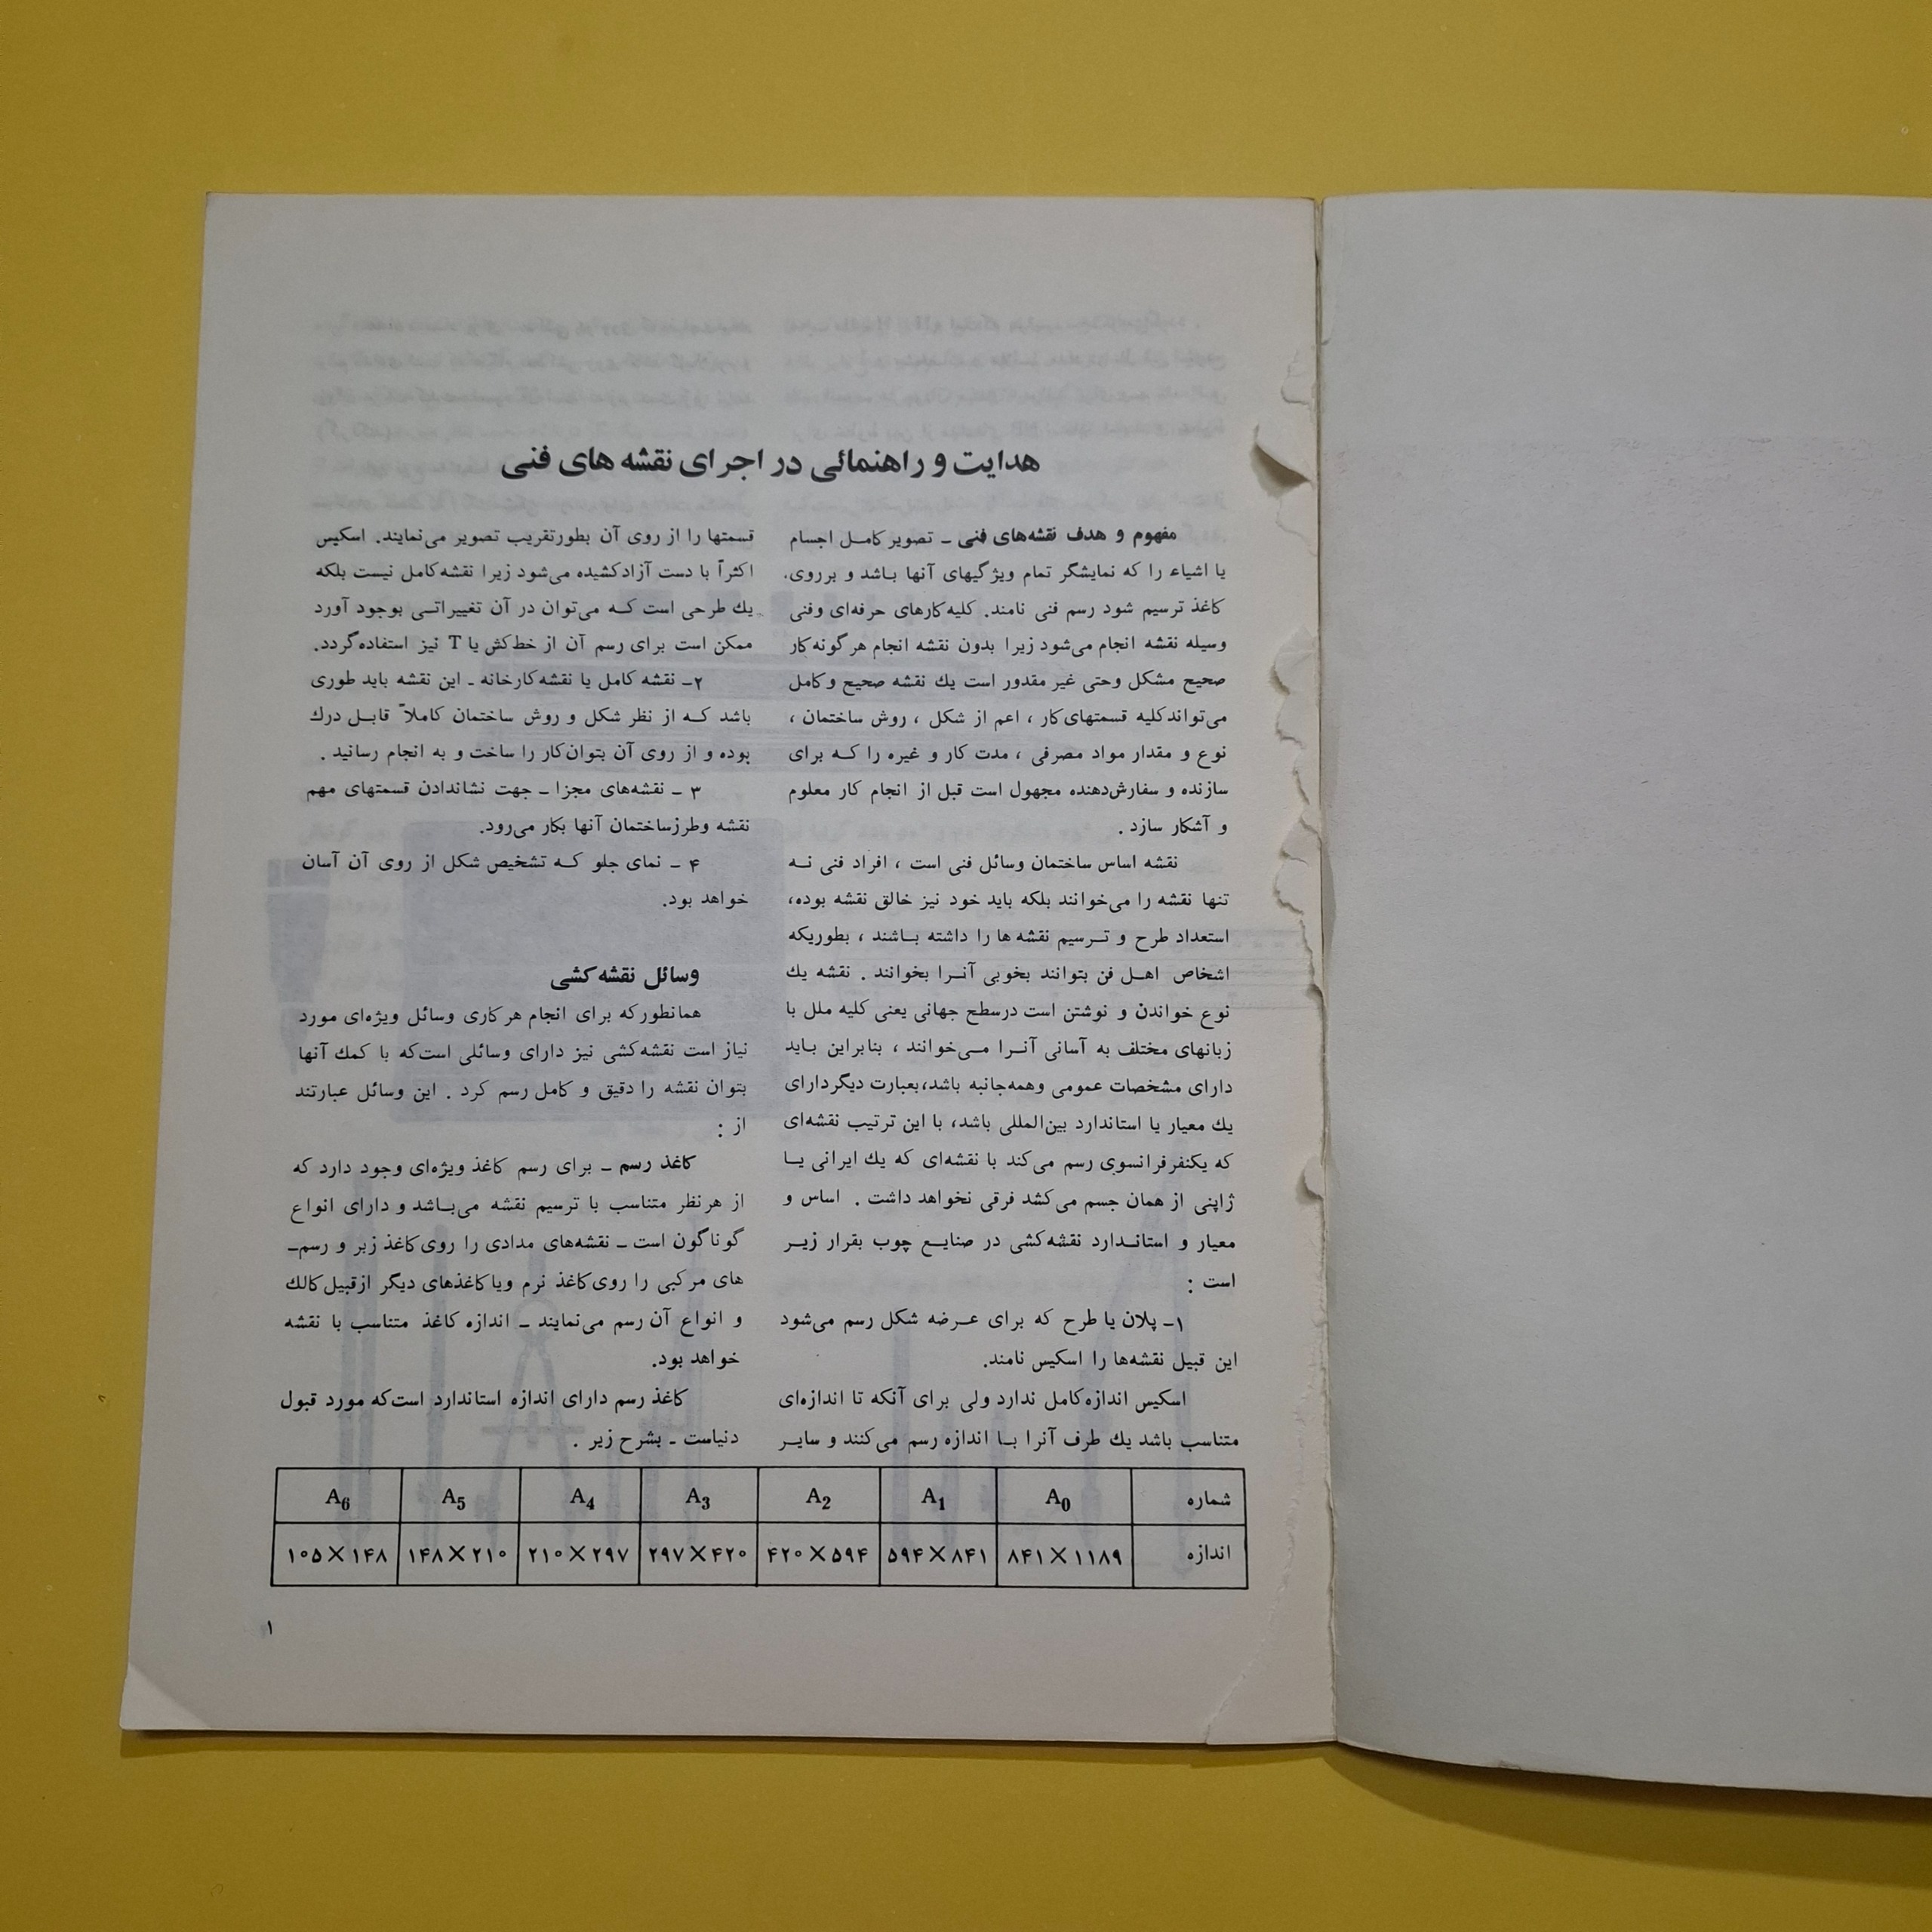 هدایت و راهنمائی در اجرای نقشه های فنی
مفهوم و هدف نقشه‌های فنی ـ تصویر کامـل اجسام
یا اشیاء را که نمایشگر تمام ویژگیهای آنها بـاشد و برروی.
کاغذ ترسیم شود رسم فنی نامند. کلیه کارهای حرفه‌ای وفنی
وسیله نقشه انجام می‌شود زیرا بدون نقشه انجام هر گونه کار
صحیح مشکل وحتی غیر مقدور است یك نقشه صحیح و کامل
می‌تواند کلیه قسمتهای کار ، اعم از شکل ، روش ساختمان ،
نوع و مقدار مواد مصرفی ، مدت کار و غیره را کـه برای
سازنده و سفارش‌دهنده مجهول است قبل از انجام کار معلوم
و آشکار سازد .
نقشه اساس ساختمان وسائل فنی است ، افراد فنی نـه
تنها نقشه را می‌خوانند بلکه باید خود نیز خالق نقشه بوده،
استعداد طرح و تـرسیم نقشه ها را داشته بـاشند ، بطوریکه
اشخاص اهـل فن بتوانند بخوبی آنـرا بخوانند . نقشه یك
نوع خواندن و نوشتن است درسطح جهانی یعنی کلیه ملل با
زبانهای مختلف به آسانی آنـرا مـی‌خوانند ، بنابراین بـاید
دارای مشخصات عمومی وهمه‌جانبه باشد،بعبارت دیگر دارای
یك معیار یا استاندارد بین‌المللی باشد، با این ترتیب نقشه‌ای
که یکنفرفرانسوی رسم می‌کند با نقشه‌ای که یك ایرانی یـا
ژاپنی از همان جسم می‌کشد فرقی نخواهد داشت . اساس و
معیار و استانـدارد نقشه‌کشی در صنایـع چوب بقرار زیـر
است :
۱ـ پلان یا طرح که برای عـرضه شکل رسم می‌شود
این قبیل نقشه‌ها را اسکیس نامند.
اسکیس اندازه کامل ندارد ولی برای آنکه تا اندازه‌ای
متناسب باشد یك طرف آنرا بـا اندازه رسم می‌کنند و سایـر
قسمتها را از روی آن بطورتقریب تصویر می‌نمایند. اسکیس
اکثراً با دست آزاد کشیده می‌شود زیرا نقشه کامل نیست بلکه
یك طرحی است کـه می‌توان در آن تغییراتـی بوجود آورد
ممکن است برای رسم آن از خط‌کش یا T نیز استفاده گردد.
۲ـ نقشه کامل یا نقشه کارخانه ـ این نقشه باید طوری
باشد کـه از نظر شکل و روش ساختمان کاملاً قابـل درك
بوده و از روی آن بتوان کار را ساخت و به انجام رسانید .
۳ ـ نقشه‌های مجزا ـ جهت نشاندادن قسمتهای مهم
نقشه وطرزساختمان آنها بکار می‌رود.
۴ ـ نمای جلو کـه تشخیص شکل از روی آن آسان
خواهد بود.
وسائل نقشه کشی
همانطورکه برای انجام هر کاری وسائل ویژه‌ای مورد
نیاز است نقشه‌کشی نیز دارای وسائلی است‌که با کمك آنها
بتوان نقشه را دقیق و کامل رسم کرد . این وسائل عبارتند
از :
کاغذ رسم ـ برای رسم کاغذ ویژه‌ای وجود دارد که
از هر نظر متناسب با ترسیم نقشه می‌بـاشد و دارای انواع
گوناگون است ـ نقشه‌های مدادی را روی کاغذ زبر و رسم‌ـ
های مرکبی را روی کاغذ نرم ویا کاغذهای دیگر ازقبیل کالك
و انواع آن رسم می‌نمایند ـ اندازه کاغذ متناسب با نقشه
خواهد بود.
کاغذ رسم دارای اندازه استاندارد است‌که مورد قبول
دنیاست ـ بشرح زیر .
شماره A0 A1 A2 A3 A4 A5 A6
اندازه ۸۴۱×۱۱۸۹ ۵۹۴×۸۴۱ ۴۲۰×۵۹۴ ۲۹۷×۴۲۰ ۲۱۰×۲۹۷ ۱۴۸×۲۱۰ ۱۰۵×۱۴۸
۱